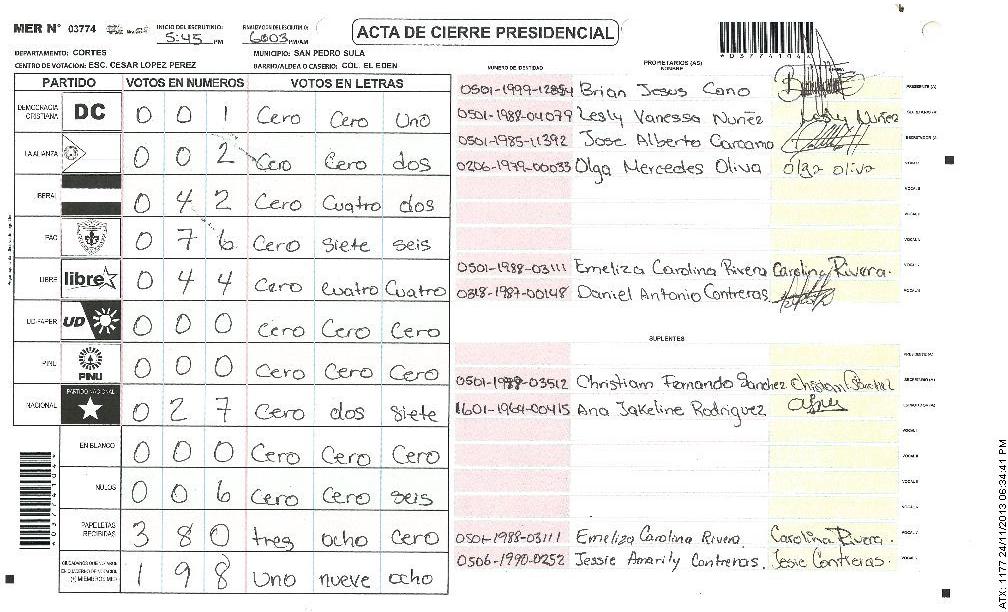 MER N° 03774 INICIO DEL ESCRUTINIO: 5:45 PM 6:003 PM/AM
ACTA DE CIERRE PRESIDENCIAL
DEPARTAMENTO: CORTES MUNICIPIO: SAN PEDRO SULA
CENTRO DE VOTACION: ESC. CESAR LOPEZ PEREZ BARRIO/ALDEA O CASERIO: COL. EL EDEN
PARTIDO VOTOS EN NUMEROS VOTOS EN LETRAS
DEMOCRACIA CRISTIANA DC 0 0 1 Cero Cero Uno
LA ALIANZA 0 0 2 Cero Cero dos
IBERAL 0 4 2 Cero Cuatro dos
PAC 0 7 6 Cero siete seis
LIBRE libre 0 4 4 Cero cuatro Cuatro
UD-FAPER UD 0 0 0 Cero Cero Cero
PINU PINU 0 0 0 Cero Cero Cero
NACIONAL PARTIDO NACIONAL 0 2 7 Cero dos siete
EN BLANCO 0 0 0 Cero Cero Cero
NULOS 0 0 6 Cero Cero seis
PAPELETAS RECIBIDAS 3 8 0 tres ocho cero
1 9 8 Uno nueve ocho
NUMERO DE IDENTIDAD PROPIETARIOS (AS) NOMBRE
0501-1999-12854 Brian Jesus Cano PRESIDENTE (A)
0501-1988-04079 Lesly Vanessa Nuñez Lesly Nuñez SECRETARIO (A)
0501-1985-11392 Jose Alberto Carcamo
0206-1979-00033 Olga Mercedes Oliva olga oliva
0501-1988-03111 Emeliza Carolina Rivera Carolina Rivera.
0318-1987-00148 Daniel Antonio Contreras
SUPLENTES
PRESIDENTE (A)
0501-1988-03512 Christiam Fernando Sanchez SECRETARIO (A)
1601-1969-00415 Ana Jakeline Rodriguez
0501-1988-03111 Emeliza Carolina Rivera Carolina Rivera.
0506-1990-0252 Jessie Amarily Contreras. Jesie Contreras.
ATX: 1177 24/11/2013 06:34:41 PM